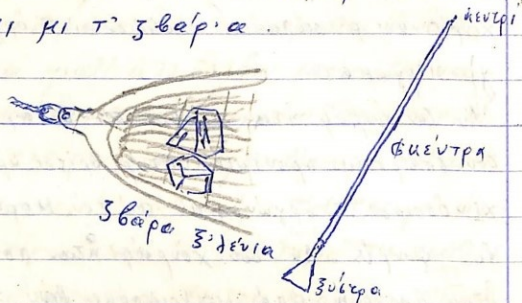 μι τ' ζβάρ'α
κεντρί
φκέντρα
ζβάρα ξ'λένια
ξύστρα